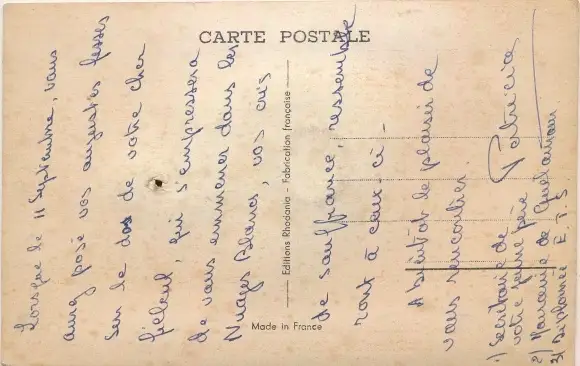 CARTE POSTALE
Lorsque le 11 Septembre, vous
aurez posé vos augustes fesses
sur le dos de votre cher
filleul, qui s'empressera
de vous emmener dans les
Nuages Blancs, vos cris
de souffrance, ressemble
ront à ceux-ci -
A bientôt le plaisir de
vous rencontrer.
Patricia
1) Secrétaire de
votre jeune père
2) Marraine de
3) Diplômée E.T.S
Editions Rhodania - Fabrication française
Made in France